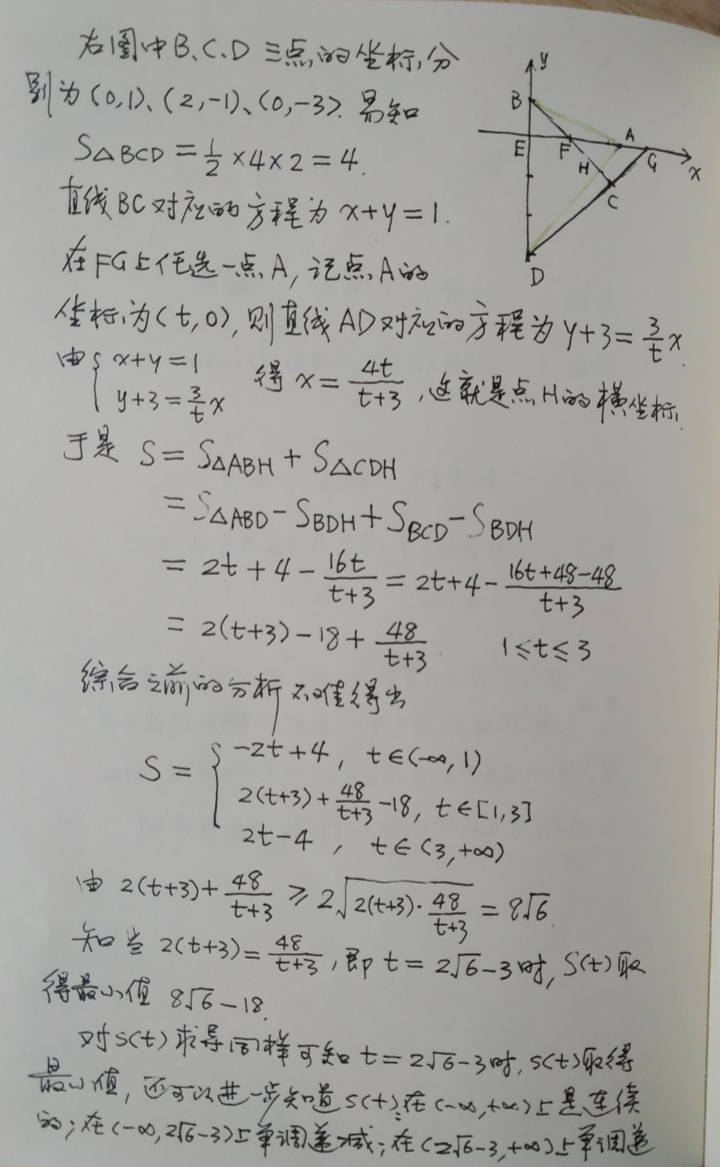 右图中B、C、D三点的坐标分
别为(0,1)、(2,-1)、(0,-3). 易知
S△BCD = 1/2 ×4×2 = 4.
直线BC对应的方程为 x+y=1.
在FG上任选一点A, 记点A的
坐标为(t,0), 则直线AD对应的方程为 y+3=3/t x.
由 { x+y=1
y+3=3/t x 得 x = 4t/(t+3), 这就是点H的横坐标.
于是 S = S△ABH + S△CDH
= S△ABD - S BDH + S BCD - S BDH
= 2t+4 - 16t/(t+3) = 2t+4 - (16t+48-48)/(t+3)
= 2(t+3) - 18 + 48/(t+3) 1≤t≤3
综合之前的分析不难得出
S = { -2t+4, t∈(-∞,1)
2(t+3)+48/(t+3)-18, t∈[1,3]
2t-4, t∈(3,+∞)
由 2(t+3)+48/(t+3) ≥ 2√(2(t+3)·48/(t+3)) = 8√6
知当 2(t+3)=48/(t+3), 即 t=2√6-3时, S(t)取
得最小值 8√6-18.
对S(t)求导同样可知 t=2√6-3时, S(t)取得
最小值, 还可以进一步知道S(t): 在(-∞,+∞)上是连续
的; 在(-∞,2√6-3)上单调递减; 在(2√6-3,+∞)上单调递
y
B
E
F
A
G
x
H
C
D